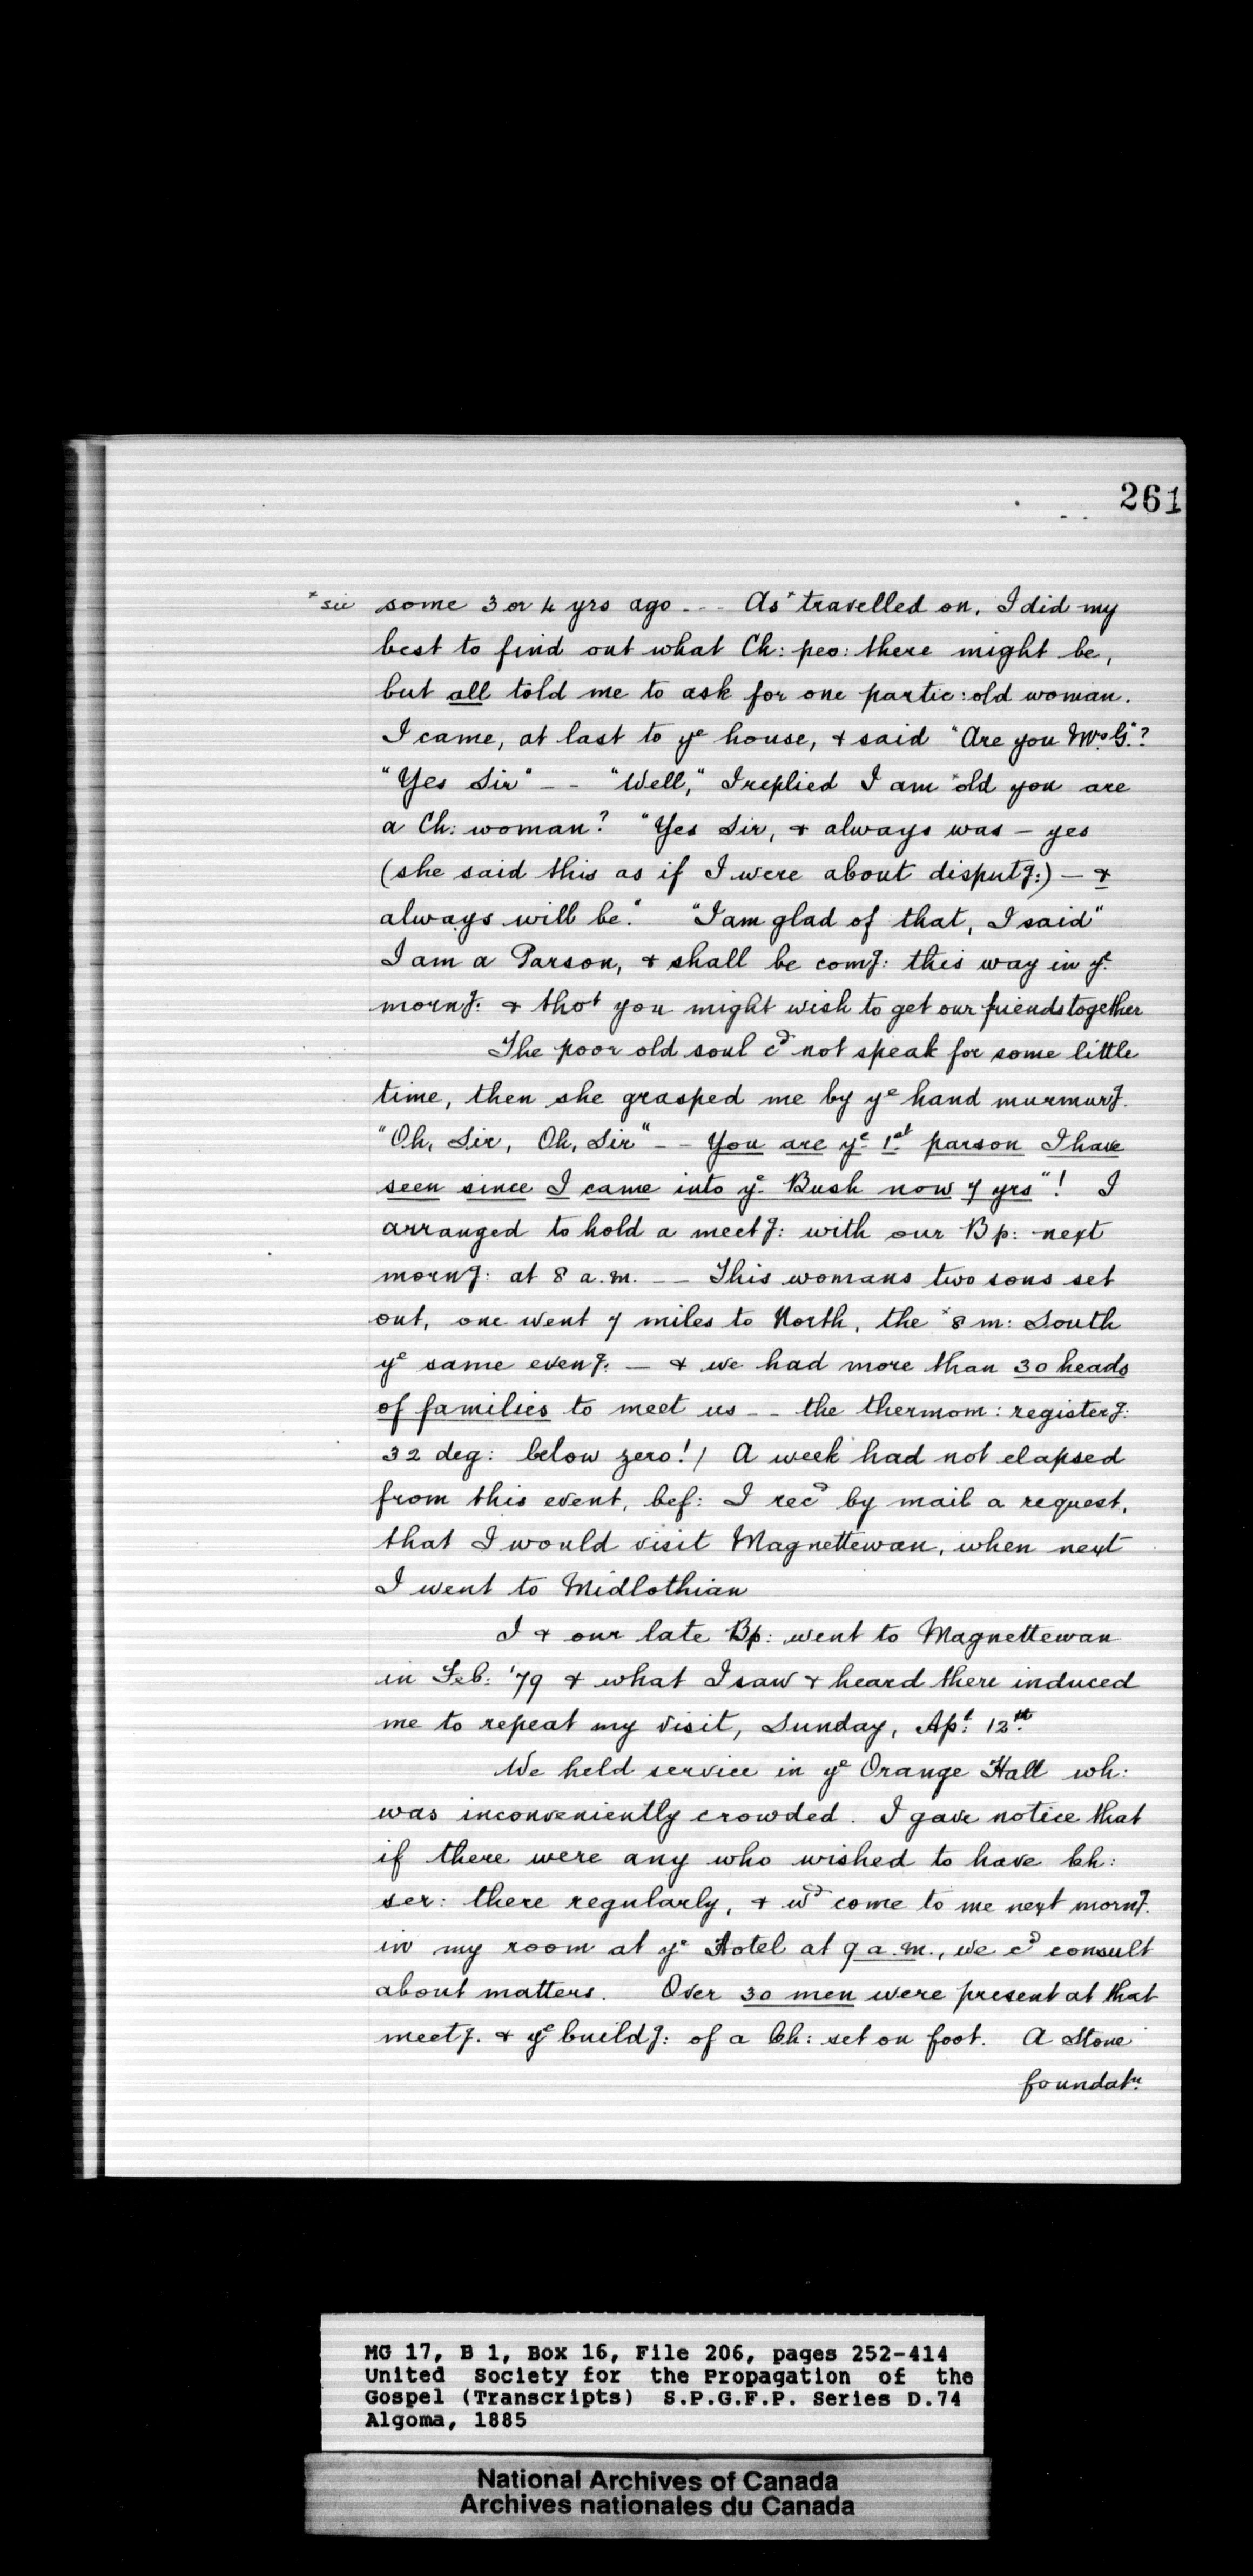 261
*sic some 3 or 4 yrs ago - - - As* travelled on, I did my
best to find out what Ch: peo: there might be,
but all told me to ask for one partic: old woman.
I came, at last to yᵉ house, & said "Are you Mrs G."?
"Yes Sir" - - "Well," I replied I am *old you are
a Ch: woman? "Yes Sir, & always was — yes
(she said this as if I were about disputg:) — &
always will be." "I am glad of that, I said"
I am a Parson, & shall be comg: this way in yᵉ
morng: & thoᵗ you might wish to get our friends together
The poor old soul cᵈ not speak for some little
time, then she grasped me by yᵉ hand murmurg.
"Oh, Sir, Oh, Sir" - - You are yᵉ 1ˢᵗ parson I have
seen since I came into yᵉ Bush now 7 yrs"! I
arranged to hold a meetg: with our Bp: next
morng: at 8 a.m. - - This womans two sons set
out, one went 7 miles to North, the *8 m: South
yᵉ same eveng: — & we had more than 30 heads
of families to meet us - - the thermom: registerg:
32 deg: below zero!/ A week had not elapsed
from this event, bef: I recᵈ by mail a request,
that I would visit Magnettewan, when next
I went to Midlothian
I & our late Bp: went to Magnettewan
in Feb: '79 & what I saw & heard there induced
me to repeat my visit, Sunday, Apˡ: 12ᵗʰ
We held service in yᵉ Orange Hall wh:
was inconveniently crowded. I gave notice that
if there were any who wished to have Ch:
ser: there regularly, & wᵈ come to me next morng.
in my room at yᵉ Hotel at 9 a.m., we cᵈ consult
about matters. Over 30 men were present at that
meetg. & yᵉ buildg: of a Ch: set on foot. A Stone
foundatⁿ:
MG 17, B 1, Box 16, File 206, pages 252-414
United Society for the Propagation of the
Gospel (Transcripts) S.P.G.F.P. Series D.74
Algoma, 1885
National Archives of Canada
Archives nationales du Canada